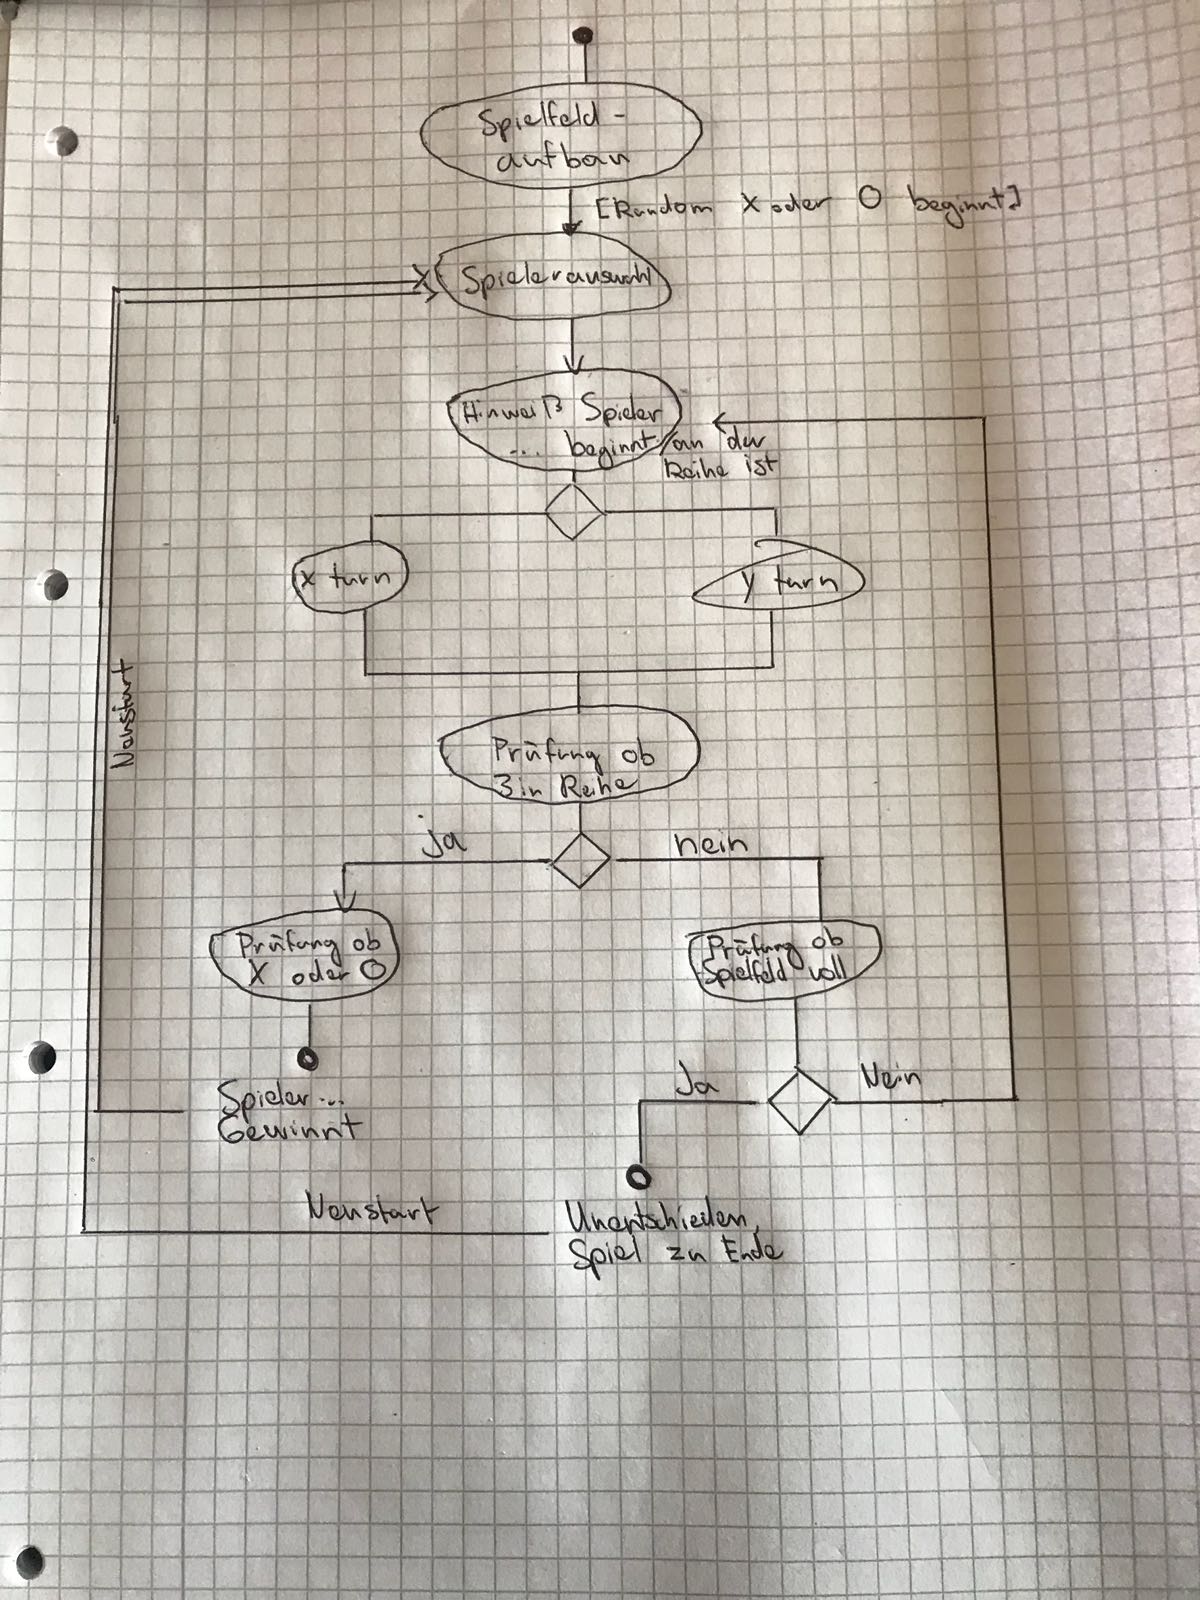 Spielfeld-
aufbau
[Random X oder O beginnt]
Spielerauswahl
Hinweiß Spieler
... beginnt/an der
Reihe ist
X turn
y turn
Neustart
Prüfung ob
3 in Reihe
ja
nein
Prüfung ob
X oder O
Prüfung ob
Spielfeld voll
Ja
Nein
Spieler...
Gewinnt
Neustart
Unentschieden,
Spiel zu Ende